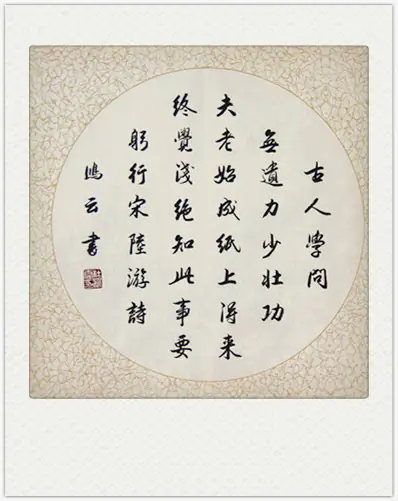 古人學問
無遺力少壮功
夫老始成紙上得来
終覺淺絶知此事要
躬行宋陸游詩
鴻云書